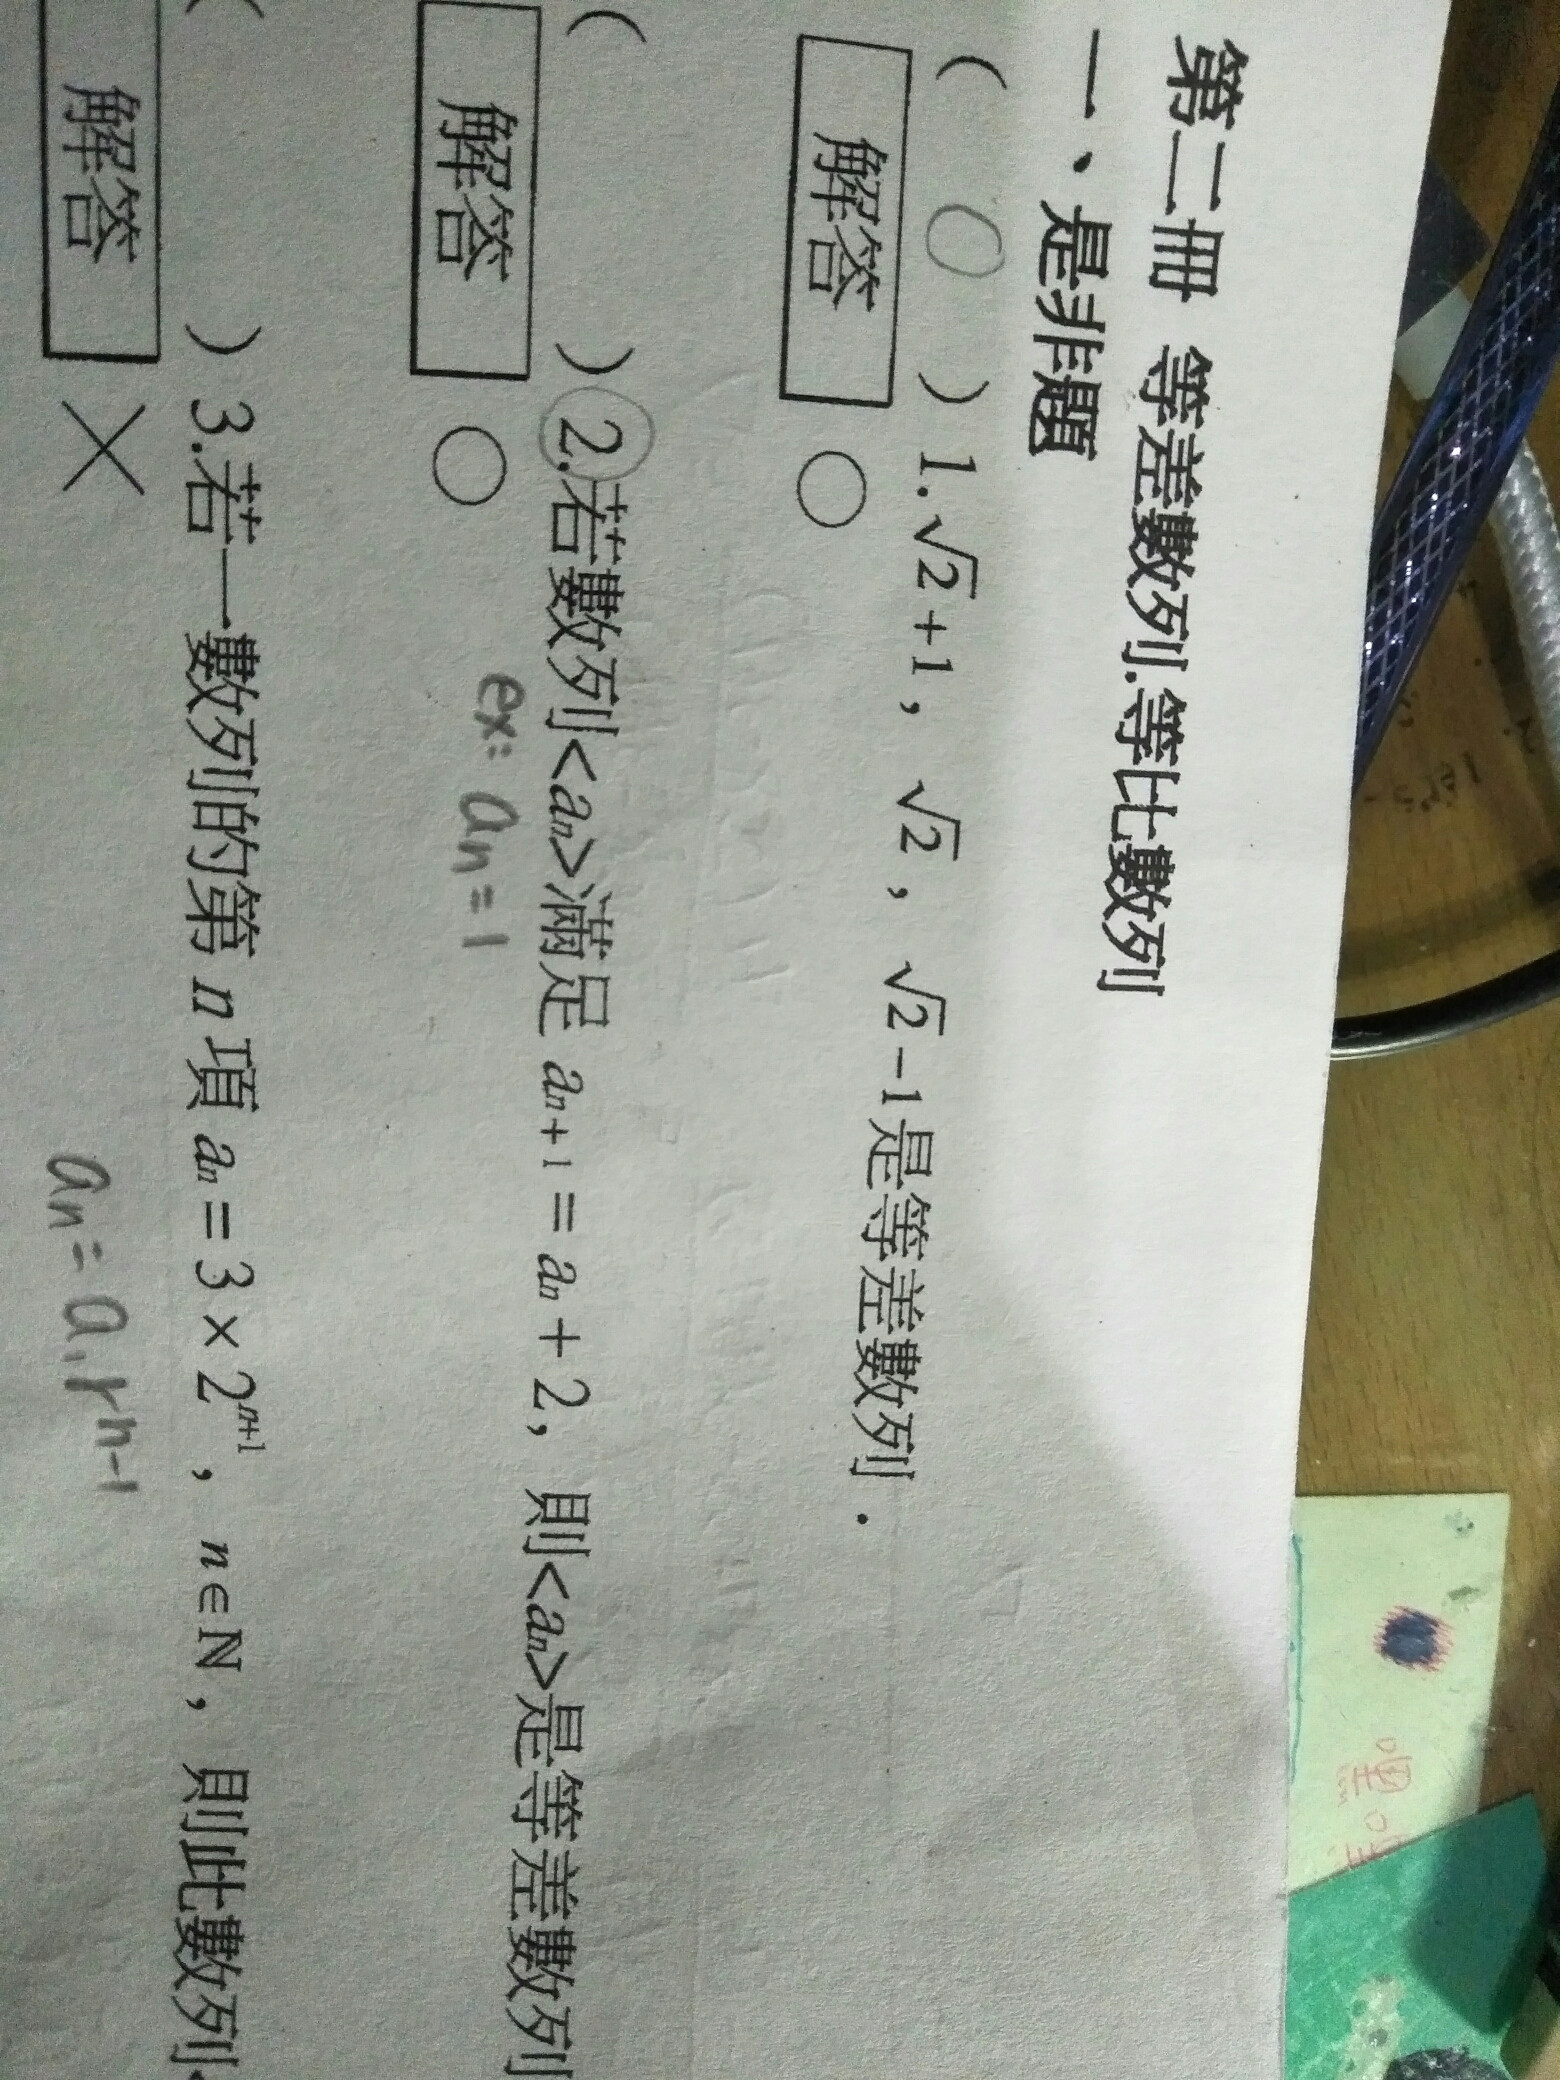 第二冊 等差數列.等比數列
一、是非題
( O ) 1.√2+1, √2, √2-1是等差數列.
解答 ○
( ) 2.若數列<aₙ>滿足 aₙ₊₁=aₙ+2, 則<aₙ>是等差數列
ex: aₙ=1
解答 ○
( ) 3.若一數列的第 n 項 aₙ=3×2ⁿ⁺¹, n∈ℕ, 則此數列
aₙ=a₁rⁿ⁻¹
解答 ×